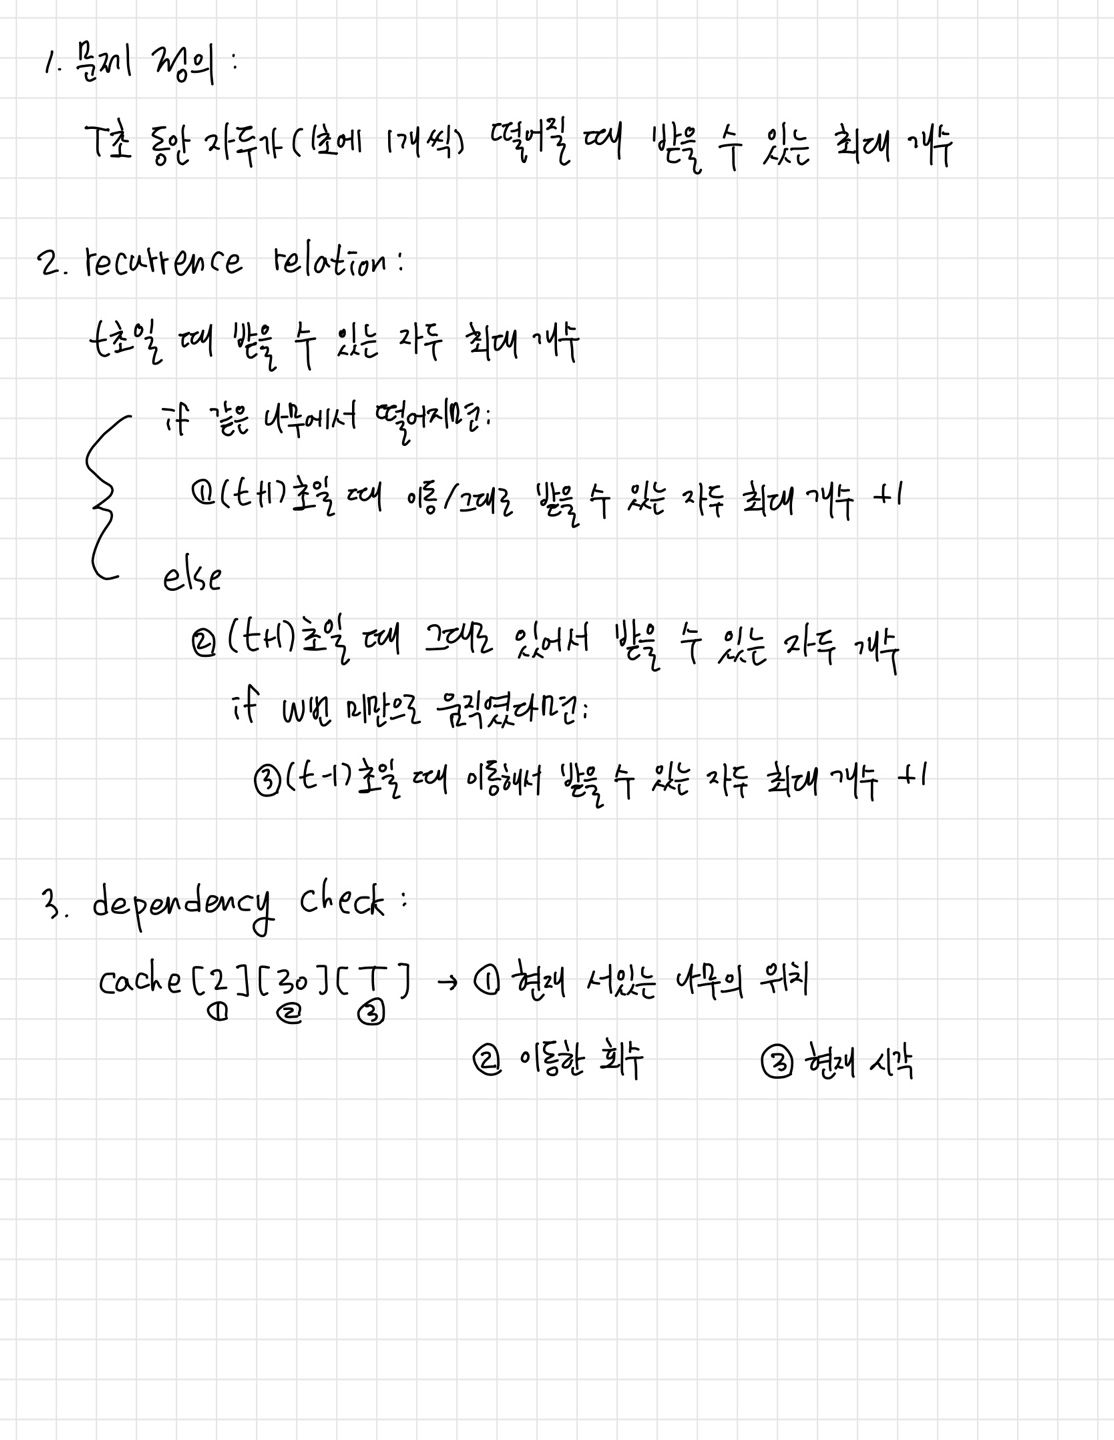 1. 문제 정의 :
T초 동안 자두가 (1초에 1개씩) 떨어질 때 받을 수 있는 최대 개수
2. recurrence relation :
t초일 때 받을 수 있는 자두 최대 개수
if 같은 나무에서 떨어지면:
① (t+1)초일 때 이동/그대로 받을 수 있는 자두 최대 개수 +1
else
② (t+1)초일 때 그대로 있어서 받을 수 있는 자두 개수
if W번 미만으로 움직였다면:
③ (t-1)초일 때 이동해서 받을 수 있는 자두 최대 개수 +1
3. dependency check :
cache [2][30][T] → ① 현재 서있는 나무의 위치
① ② ③
② 이동한 회수 ③ 현재 시각